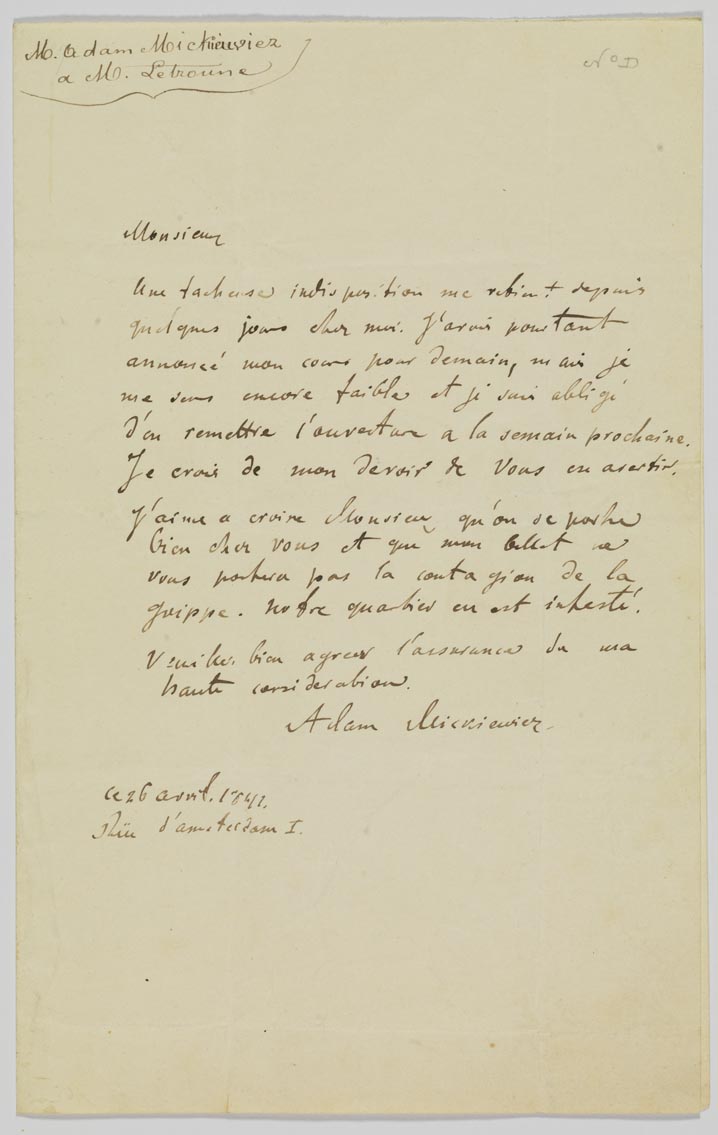 M. Adam Mickiewicz
a M. Letronne
N° D
Monsieur
Une facheuse indisposition me retient depuis
quelques jours chez moi. J'avais pourtant
annoncé mon cours pour demain, mais je
me sens encore faible et je suis obligé
d'en remettre l'ouverture a la semain prochaine.
Je crois de mon devoir de vous en avertir.
J'aime a croire Monsieur qu'on se porte
bien chez vous et que mon billet ne
vous portera pas la contagion de la
grippe. Notre quartier en est infesté.
Veuillez bien agreer l'assurance de ma
haute consideration.
Adam Mickiewicz
ce 26 avril. 1841.
Rüe d'amsterdam I.